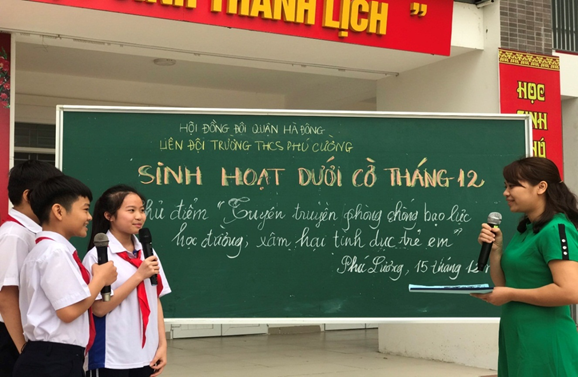 THANH LỊCH "
HỘI ĐỒNG ĐỘI QUẬN HÀ ĐÔNG
LIÊN ĐỘI TRƯỜNG THCS PHÚ CƯỜNG
SINH HOẠT DƯỚI CỜ THÁNG 12
điểm "Tuyên truyền phòng chống bạo lực
học đường, xâm hại tình dục trẻ em"
Phú Lương, 15 tháng 12
HỌC